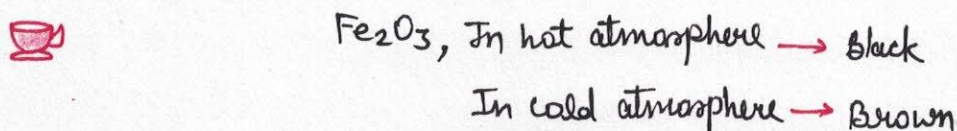 Fe₂O₃, In hot atmosphere → Black
In cold atmosphere → Brown